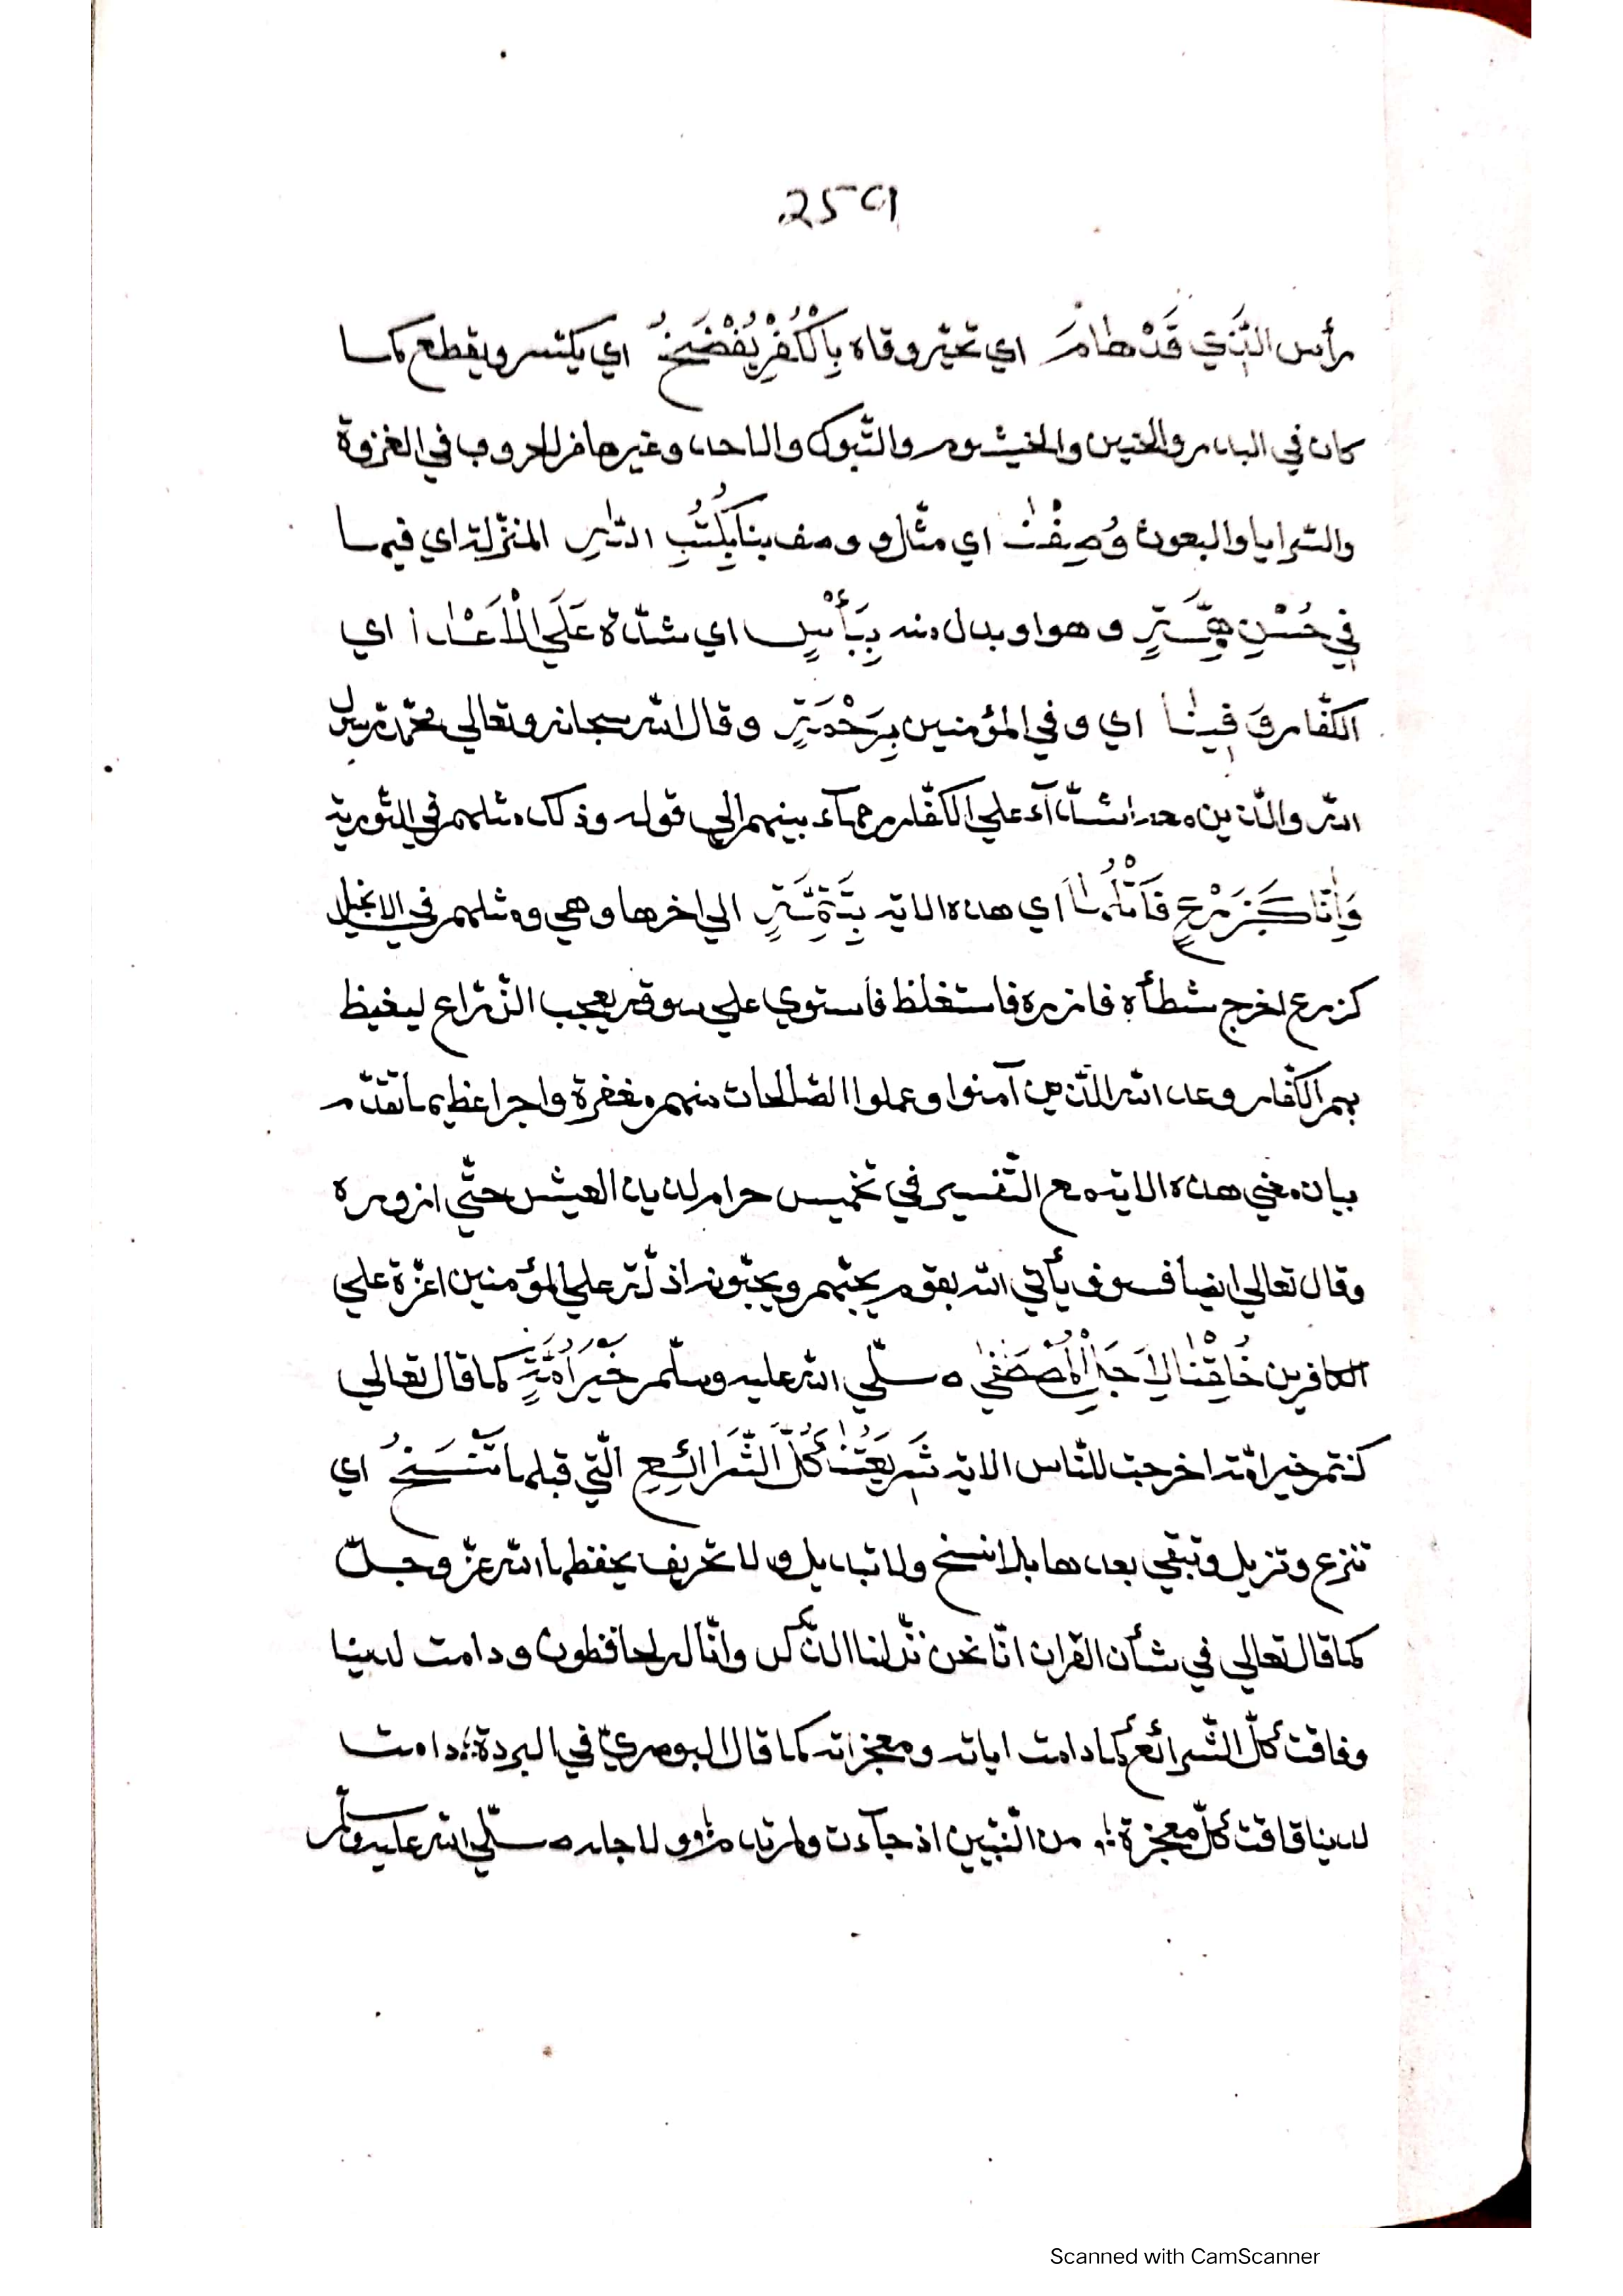 2591
رأس الَّذِي قَدْ هَامَ اي تحيّر وقاه بِاْلْكُفْرِ يُفْضَخُ اي يكتسر ويقطع كما
كان في البدر والحنين والخيشوم والتّبوك والاحد وغيرها من الحروب في الغزوة
والسّرايا والبعوث وُصِفْنٰا اي مثّل و وصف بنا بِكُتُبِ اللّٰهِ المنزّلة اي فيها
فِي حُسْنِ هِمَّةٍ و هو او بدل منه بِبَأْسٍ اي شدّة عَلَي الْاَعْدا اي
الكفّار وَفِينٰا اي و في المؤمنين بِرَحْمَةٍ و قال الله سبحانه وتعالي محمّد رسول
الله والّذين معه اشدّآء علي الكفّار رحمآء بينهم الي قوله وذلك مثلهم في التّورية
وَاِنّٰا كَزَرْعٍ فَاتْلُهٰا اي هذه الاية بِتَتِمَّةٍ الي اخرها وهي ومثلهم في الانجيل
كزرع اخرج شطأه فازره فاستغلظ فاستوي علي سوقه يعجب الزّراع ليغيظ
بهم الكفّار وعد الله الّذين آمنوا وعملوا الصّالحات منهم مغفرة واجرا عظيما تقدّم
بيان معني هذه الاية مع التّفسير في تخميس حرام لذيذ العيش حتّي ازوره
وقال تعالي ايضا فسوف يأتي الله بقوم يحبّهم ويحبّونه اذلّة علي المؤمنين اعزّة علي
الكافرين خُلِقْنٰا لِاَجَلِ الْمُصْطَفٰي صلّي الله عليه وسلّم خَيْرَ اُمَّةٍ كما قال تعالي
كنتم خير امّة اخرجت للنّاس الاية شَرِيعَتُنٰا كُلَّ الشَّرَائِعِ الّتي قبلها تَنْسَخُ اي
تنزع وتزيل وتبقي بعدها بلا نسخ ولا تبديل ولا تحريف يحفظها الله عزّ وجلّ
كما قال تعالي في شأن القران انّا نحن نزّلنا الذّكر وانّا له لحافظون ودامت لدينا
وفاقت كلّ الشّرائع كما دامت اياته ومعجزاته كما قال البوصريّ في البردة؛ دامت
لدينا فاقت كلّ معجزة؛ من النّبيين اذ جآءت ولم تدم و لاجله صلّي الله عليه وسلّم
Scanned with CamScanner